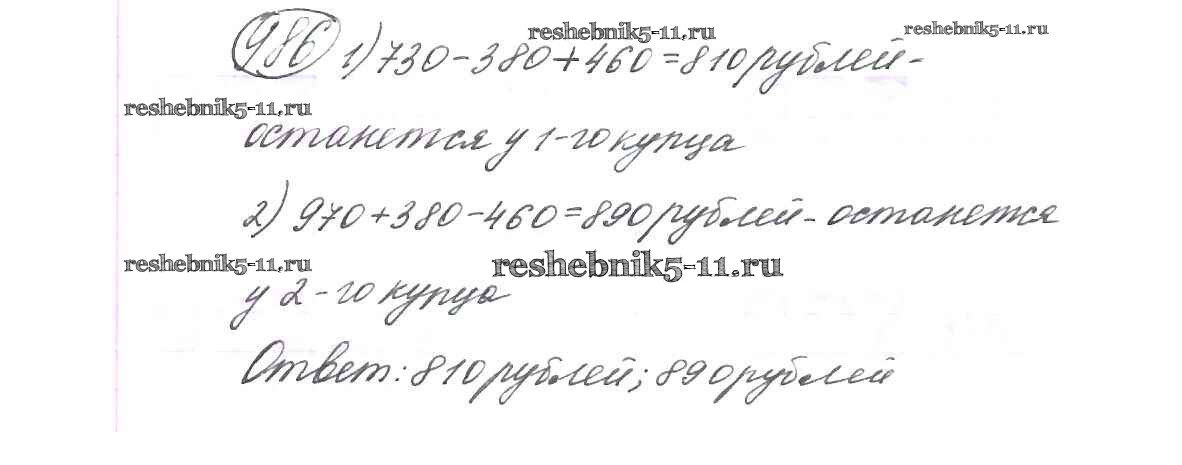 reshebnik5-11.ru
reshebnik5-11.ru
486 1) 730-380+460=810 рублей-
reshebnik5-11.ru
останется у 1-го купца
2) 970+380-460=890 рублей- останется
reshebnik5-11.ru
reshebnik5-11.ru
у 2-го купца
Ответ: 810 рублей; 890 рублей